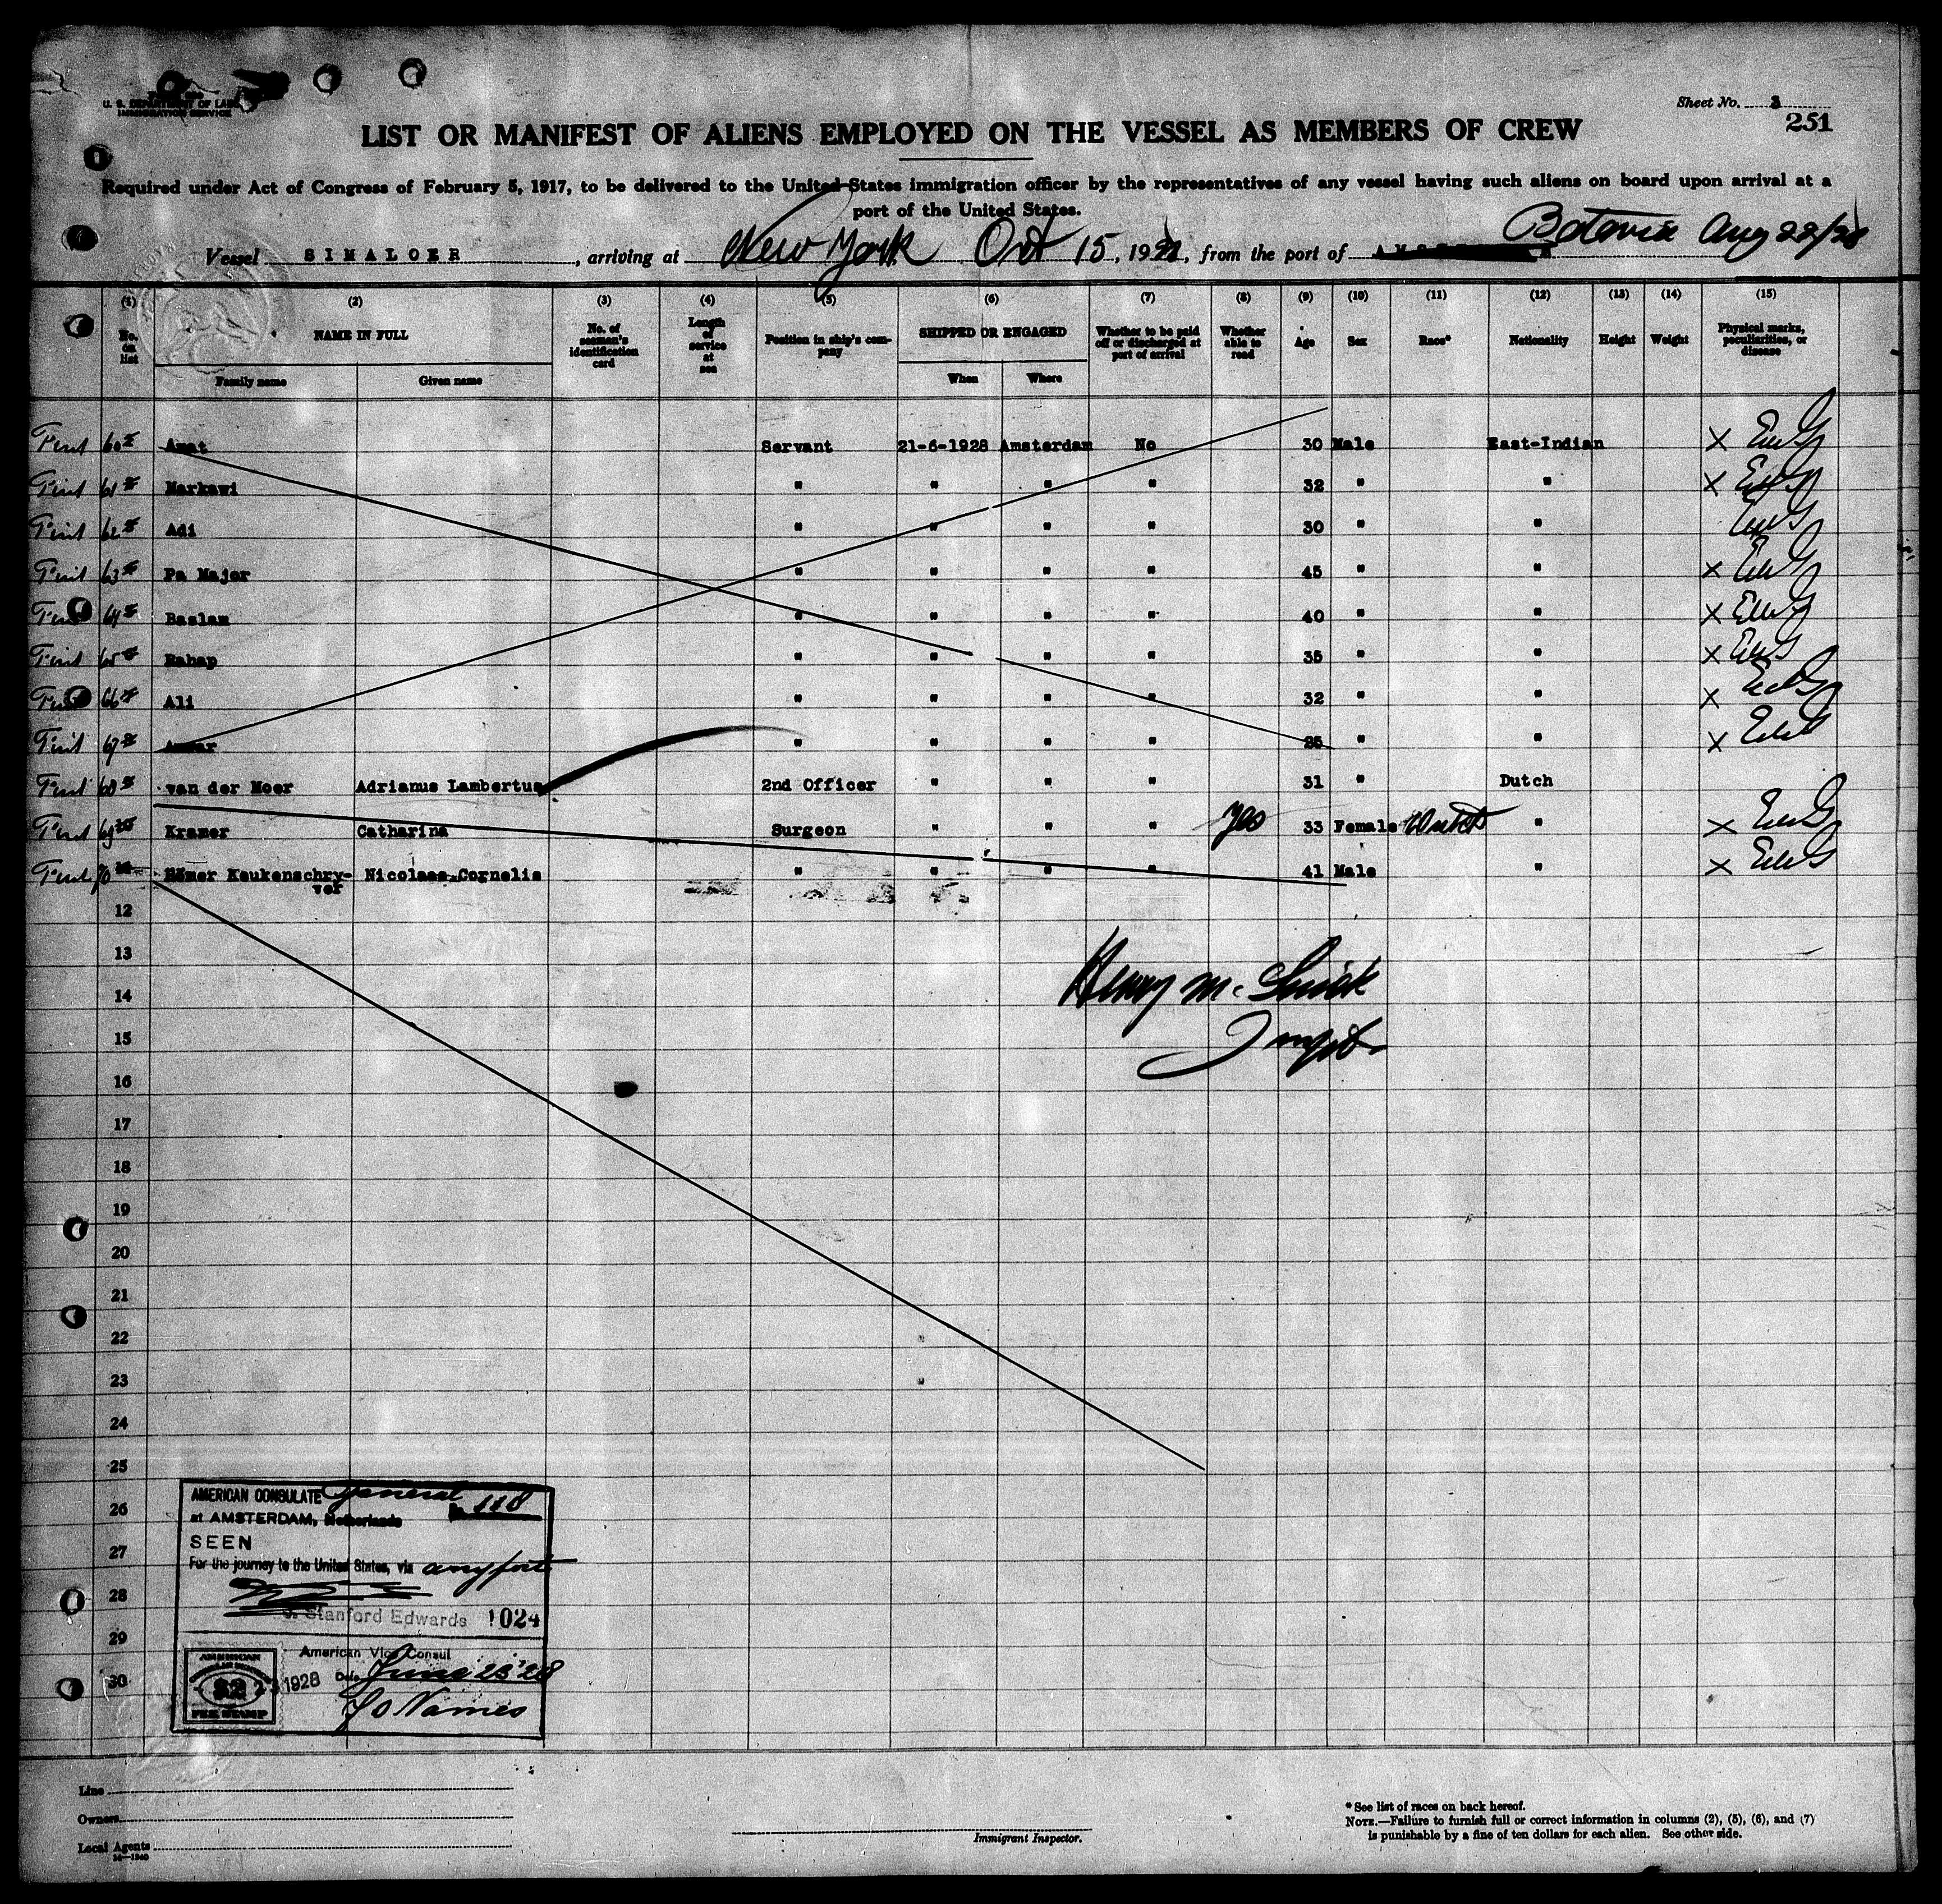 U. S. DEPARTMENT OF LABOR
IMMIGRATION SERVICE
Sheet No. 3
251
LIST OR MANIFEST OF ALIENS EMPLOYED ON THE VESSEL AS MEMBERS OF CREW
Required under Act of Congress of February 5, 1917, to be delivered to the United States immigration officer by the representatives of any vessel having such aliens on board upon arrival at a
port of the United States.
Vessel SIMALOER, arriving at New York Oct 15, 1928, from the port of Batavia Aug 22/28
(1) (2) (3) (4) (5) (6) (7) (8) (9) (10) (11) (12) (13) (14) (15)
No. on list NAME IN FULL No. of seaman's identification card Length of service at sea Position in ship's company SHIPPED OR ENGAGED Whether to be paid off or discharged at port of arrival Whether able to read Age Sex Race* Nationality Height Weight Physical marks, peculiarities, or disease
Family name Given name When Where
60 Amat Servant 21-6-1928 Amsterdam No 30 Male East-Indian X
61 Markawi " " " " 32 " " X
62 Adi " " " " 30 " "
63 Pa Major " " " " 45 " " X
64 Baslam " " " " 40 " " X
65 Rahap " " " " 35 " " X
66 Ali " " " " 32 " " X
67 " " " " 25 " " X
68 van der Moer Adrianus Lambertus 2nd Officer " " " 31 " Dutch
69 Kramer Catharina Surgeon " " " Yes 33 Female Dutch " X
70 Römer Keukenschry- Nicolaas Cornelis " " " " 41 Male " X
ver
12
13
Henry M.
14
15
Inspt
16
17
18
19
20
21
22
23
24
25
26
27
28
29
30
AMERICAN CONSULATE General
at AMSTERDAM, Netherlands
SEEN
For the journey to the United States, via any port
J. Stanford Edwards 1024
American Vice Consul
AMERICAN
$2
FEE STAMP
1928 Date June 23'28
70 Names
Line
Owners
Local Agents
14—1240
Immigrant Inspector.
* See list of races on back hereof.
NOTE.—Failure to furnish full or correct information in columns (2), (5), (6), and (7)
is punishable by a fine of ten dollars for each alien. See other side.